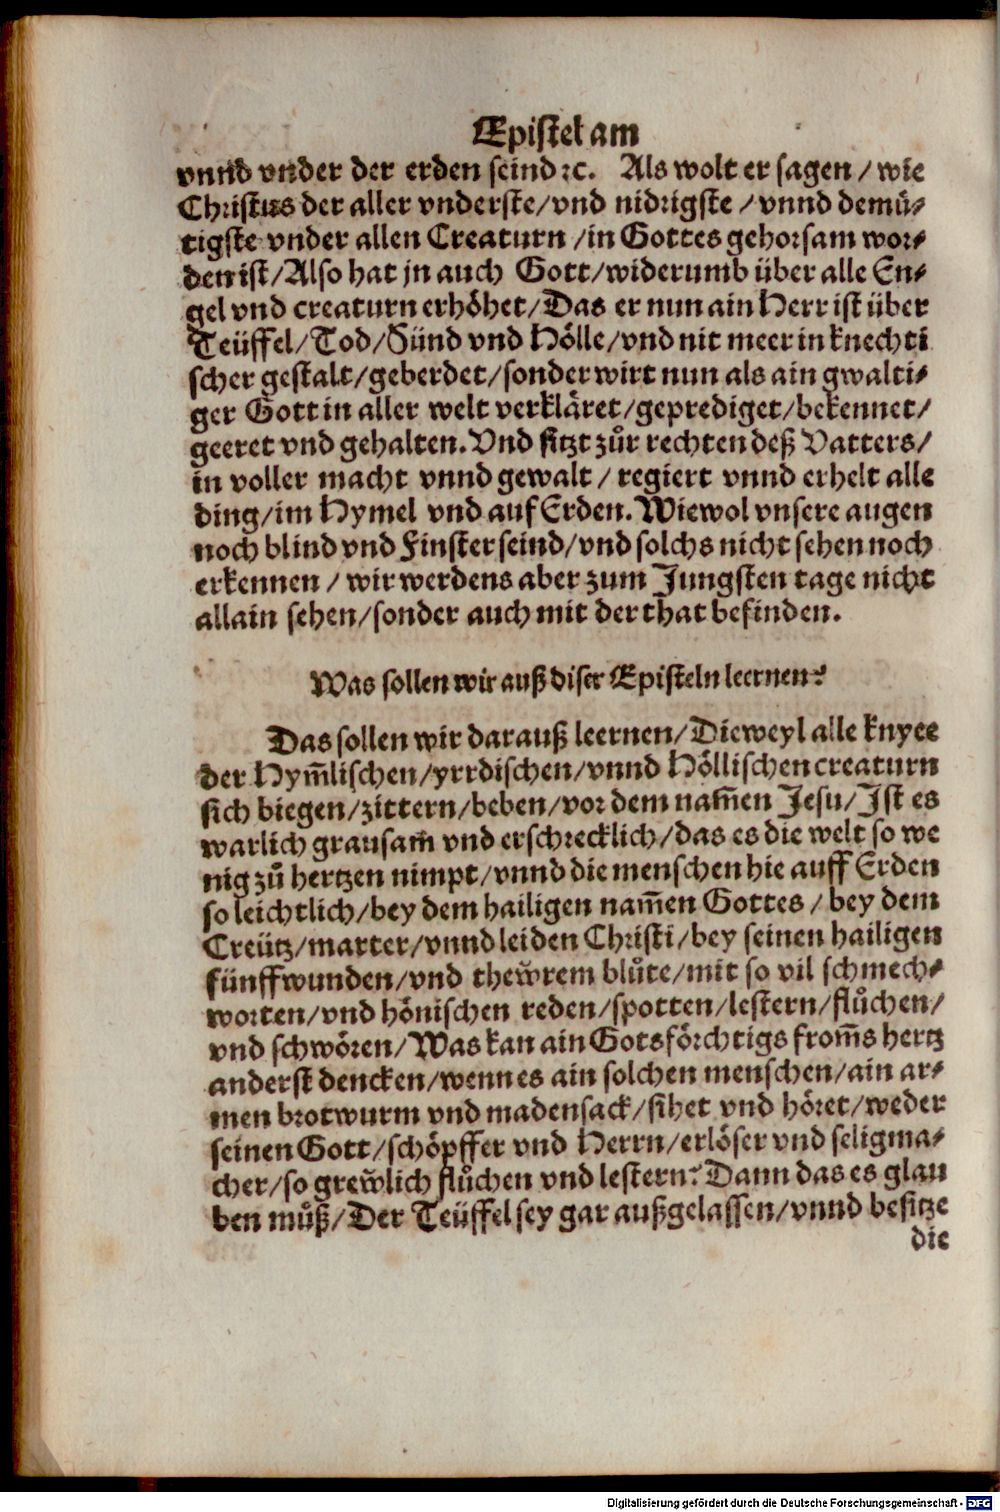 Epistel am
vnnd vnder der erden seind ꝛc. Als wolt er sagen / wie
Christus der aller vnderste/vnd nidrigste / vnnd demuͤ⸗
tigste vnder allen Creaturn /in Gottes gehorsam wor⸗
den ist/Also hat jn auch Gott/widerumb über alle En⸗
gel vnd creaturn erhöhet/Das er nun ain Herr ist über
Teüffel/Tod/Sünd vnd Hölle/vnd nit meer in knechti
scher gestalt/geberdet/sonder wirt nun als ain gwalti⸗
ger Gott in aller welt verkläret/geprediget/bekennet/
geeret vnd gehalten. Vnd sitzt zůr rechten deß Vatters/
in voller macht vnnd gewalt / regiert vnnd erhelt alle
ding/im Hymel vnd auf Erden. Wiewol vnsere augen
noch blind vnd Finster seind/vnd solchs nicht sehen noch
erkennen / wir werdens aber zum Jungsten tage nicht
allain sehen/sonder auch mit der that befinden.
Was sollen wir auß diser Episteln leernen?
Das sollen wir darauß leernen/Dieweyl alle knyee
der Hym̃lischen/yrrdischen/vnnd Höllischen creaturn
sich biegen/zittern/beben/vor dem nam̃en Jesu/Ist es
warlich grausam̃ vnd erschrecklich/das es die welt so we
nig zů hertzen nimpt/vnnd die menschen hie auff Erden
so leichtlich/bey dem hailigen nam̃en Gottes / bey dem
Creütz/marter/vnnd leiden Christi/bey seinen hailigen
fünff wunden/vnd thew̃rem blůte/mit so vil schmech⸗
worten/vnd hönischen reden/spotten/lestern/flůchen/
vnd schwören/Was kan ain Gotsförchtigs from̃s hertz
anderst dencken/wenn es ain solchen menschen/ain ar⸗
men brotwurm vnd madensack/sihet vnd höret/weder
seinen Gott/schöpffer vnd Herrn/erlöser vnd seligma⸗
cher/so grew̃lich flůchen vnd lestern? Dann das es glau
ben můß/Der Teüffel sey gar außgelassen/vnnd besitze
die
Digitalisierung gefördert durch die Deutsche Forschungsgemeinschaft - DFG